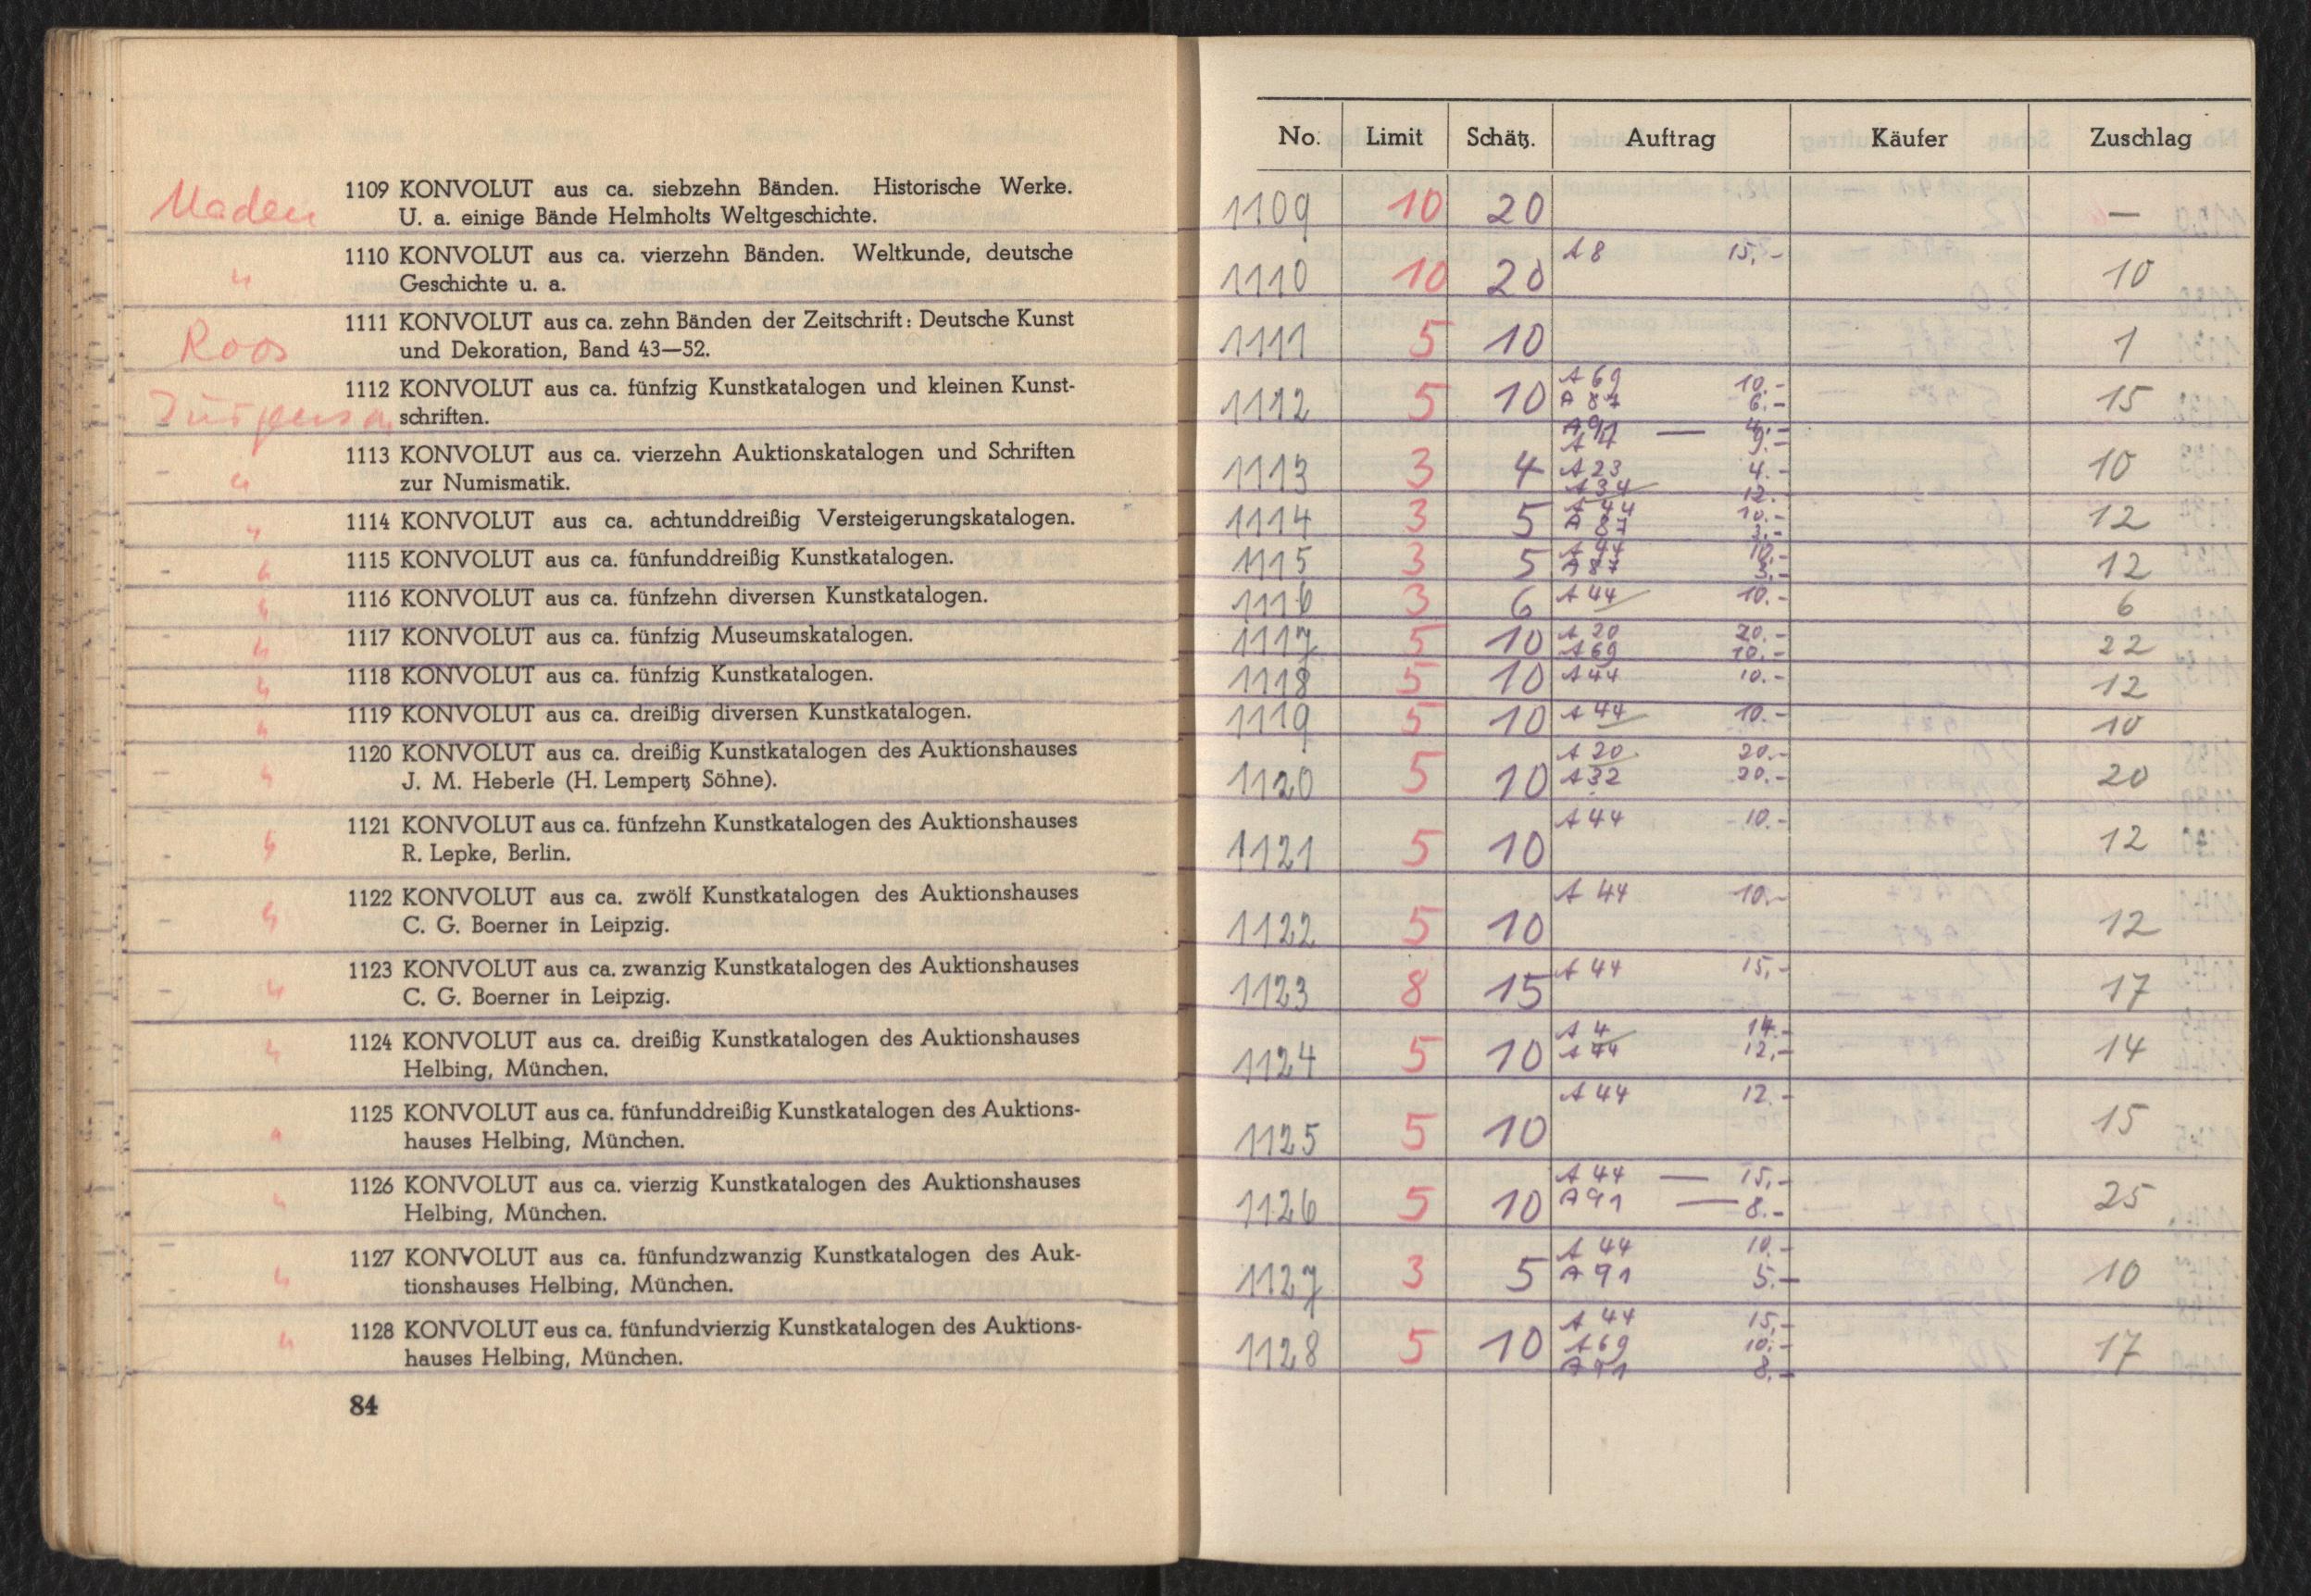 Maden 1109 KONVOLUT aus ca. siebzehn Bänden. Historische Werke.
U. a. einige Bände Helmholts Weltgeschichte.
" 1110 KONVOLUT aus ca. vierzehn Bänden. Weltkunde, deutsche
Geschichte u. a.
Roos 1111 KONVOLUT aus ca. zehn Bänden der Zeitschrift: Deutsche Kunst
und Dekoration, Band 43—52.
1112 KONVOLUT aus ca. fünfzig Kunstkatalogen und kleinen Kunst-
schriften.
- " 1113 KONVOLUT aus ca. vierzehn Auktionskatalogen und Schriften
zur Numismatik.
" 1114 KONVOLUT aus ca. achtunddreißig Versteigerungskatalogen.
- " 1115 KONVOLUT aus ca. fünfunddreißig Kunstkatalogen.
- " 1116 KONVOLUT aus ca. fünfzehn diversen Kunstkatalogen.
- " 1117 KONVOLUT aus ca. fünfzig Museumskatalogen.
- " 1118 KONVOLUT aus ca. fünfzig Kunstkatalogen.
- " 1119 KONVOLUT aus ca. dreißig diversen Kunstkatalogen.
- " 1120 KONVOLUT aus ca. dreißig Kunstkatalogen des Auktionshauses
J. M. Heberle (H. Lempertz Söhne).
- " 1121 KONVOLUT aus ca. fünfzehn Kunstkatalogen des Auktionshauses
R. Lepke, Berlin.
- " 1122 KONVOLUT aus ca. zwölf Kunstkatalogen des Auktionshauses
C. G. Boerner in Leipzig.
- " 1123 KONVOLUT aus ca. zwanzig Kunstkatalogen des Auktionshauses
C. G. Boerner in Leipzig.
- " 1124 KONVOLUT aus ca. dreißig Kunstkatalogen des Auktionshauses
Helbing, München.
" 1125 KONVOLUT aus ca. fünfunddreißig Kunstkatalogen des Auktions-
hauses Helbing, München.
- " 1126 KONVOLUT aus ca. vierzig Kunstkatalogen des Auktionshauses
Helbing, München.
- " 1127 KONVOLUT aus ca. fünfundzwanzig Kunstkatalogen des Auk-
tionshauses Helbing, München.
- " 1128 KONVOLUT eus ca. fünfundvierzig Kunstkatalogen des Auktions-
hauses Helbing, München.
84
No. Limit Schätz. Auftrag Käufer Zuschlag
1109 10 20 —
A 8 15,-
1110 10 20 10
1111 5 10 1
A 69 10.-
1112 5 10 A 87 6.- 15
A 91 — 4.-
A 4 9.-
1113 3 4 A 23 4.- 10
A 34 12.-
A 44 10.-
1114 3 5 A 87 3.- 12
A 44 10.-
1115 3 5 A 87 3.- 12
1116 3 6 A 44 10.- 6
A 20 20.-
1117 5 10 A 69 10.- 22
1118 5 10 A 44 10.- 12
1119 5 10 A 44 10.- 10
A 20 20.-
1120 5 10 A 32 20.- 20
A 44 10.-
1121 5 10 12
A 44 10.-
1122 5 10 12
A 44 15,-
1123 8 15 17
A 4 14.-
1124 5 10 A 44 12,- 14
A 44 12.-
1125 5 10 15
A 44 — 15,-
1126 5 10 A 91 — 8.- 25
A 44 10.-
1127 3 5 A 91 5.- 10
A 44 15,-
1128 5 10 A 69 10.- 17
A 91 8.-